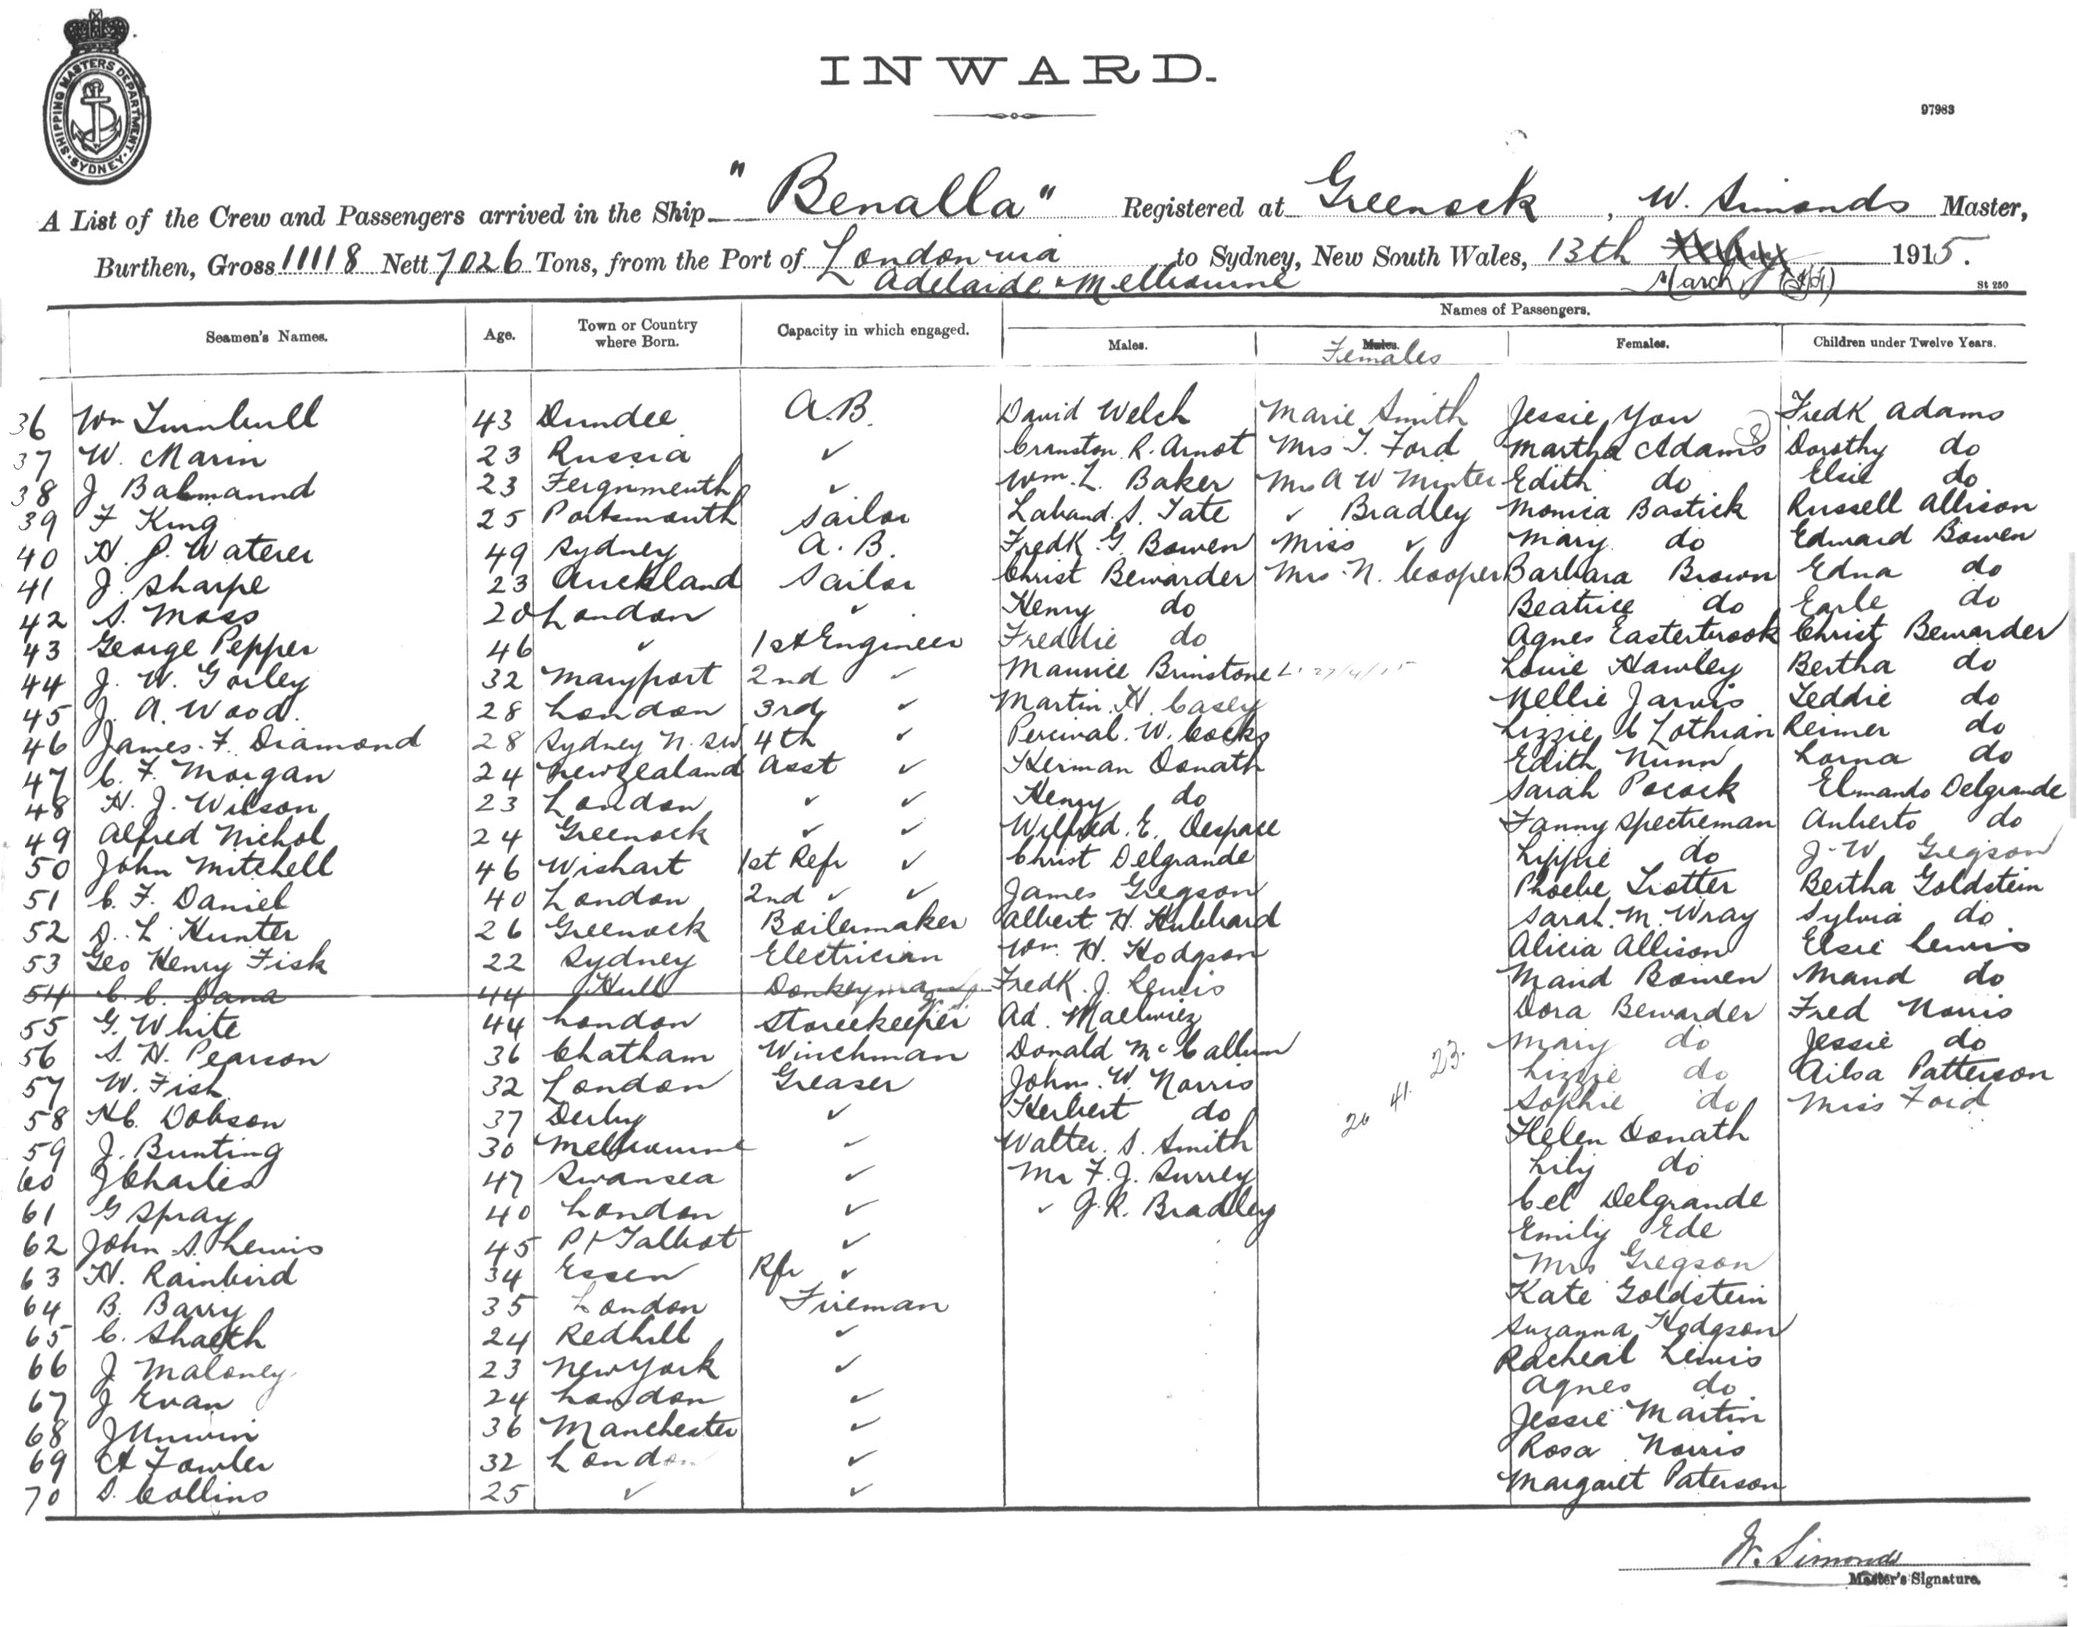 INWARD.
97983
SHIPPING MASTERS DEPARTMENT SYDNEY
A List of the Crew and Passengers arrived in the Ship "Benalla" Registered at Greenock, W. Simonds Master,
Burthen, Gross 11118 Nett 7026 Tons, from the Port of London via to Sydney, New South Wales, 13th 1915.
Adelaide & Melbourne March
St 250
Names of Passengers.
Seamen's Names. Age. Town or Country where Born. Capacity in which engaged. Males. Females Females. Children under Twelve Years.
36 Wm Turnbull 43 Dundee A.B. David Welch Marie Smith Jessie You Fredk Adams
37 W. Marin 23 Russia ✓ Cranston R. Arnot Mrs T. Ford Martha Adams Dorothy do
38 J 23 ✓ Wm. L. Baker Mrs A W Minter Edith do Elsie do
39 F King 25 Portsmouth Sailor S. Tate ✓ Bradley Monica Bastick Russell Allison
40 H. J. Waterer 49 Sydney A.B. Fredk. G. Bowen Miss ✓ Mary do Edward Bowen
41 J. Sharpe 23 Auckland Sailor Christ Bewarder Mrs. N. Cooper Barbara Brown Edna do
42 S. Moss 20 London ✓ Henry do Beatrice do Earle do
43 George Pepper 46 ✓ 1st Engineer Freddie do Agnes Easterbrook Christ Bewarder
44 J. W. Gorley 32 Maryport 2nd ✓ Maurice Brinstone Louie Hawley Bertha do
45 J. A. Wood. 28 London 3rd ✓ Martin. H. Casey Nellie Jarvis Teddie do
46 James. F. Diamond 28 Sydney N.SW 4th ✓ Percival. W. Cocks Lizzie C Lothian Reimer do
47 C. F. Morgan 24 New Zealand Asst ✓ Herman Donath Edith Nunn Lorna do
48 H. J. Wilson 23 London ✓ ✓ Henry do Sarah Pocock Elmando Delgrande
49 Alfred Nichol 24 Greenock ✓ ✓ Wilfred. E. Despace Fanny Spectreman Anberto do
50 John Mitchell 46 Wishart 1st Refr ✓ Christ Delgrande do J. W Gregson
51 C. F. Daniel 40 London 2nd ✓ ✓ James Gregson Phoebe Trotter Bertha Goldstein
52 D. L. Hunter 26 Greenock Boilermaker Albert. H. Hubbard Sarah. M. Wray Sylvia do
53 Geo Henry Fisk 22 Sydney Electrician Wm. H. Hodgson Alicia Allison Elsie Lewis
54 C. C. Dana 44 Hull Donkeyman Fredk. J. Lewis Maud Bowen Maud do
55 G. White 44 London Storekeeper Ad. Dora Bewarder Fred Norris
56 S. H. Pearson 36 Chatham Winchman Donald McCallum Mary do Jessie do
57 W. Fish 32 London Greaser John. W. Norris 23. Lizzie do Ailsa Patterson
58 Hb. Dobson 37 Derby ✓ Herbert do 26 41. Sophie do Miss Ford
59 J. Bunting 30 Melbourne ✓ Walter. S. Smith Helen Donath
60 J Charles 47 Swansea ✓ Mr F. J. Surrey Lily do
61 G Spray 40 London ✓ ✓ J. R. Bradley Cel Delgrande
62 John S. Lewis 45 Pt Talbot ✓ Emily Ede
63 H. Rainbird 34 Essen Rfr ✓ Mrs Gregson
64 B. Barry 35 London Fireman Kate Goldstein
65 C. 24 Redhill ✓ Suzanna Hodgson
66 J Maloney 23 New York ✓ Racheal Lewis
67 J Evan 24 London ✓ Agnes do
68 J Unwin 36 Manchester ✓ Jessie Martin
69 A Fowler 32 London ✓ Rosa Norris
70 D. Collins 25 ✓ ✓ Margaret Paterson
W. Simonds
Master's Signature.